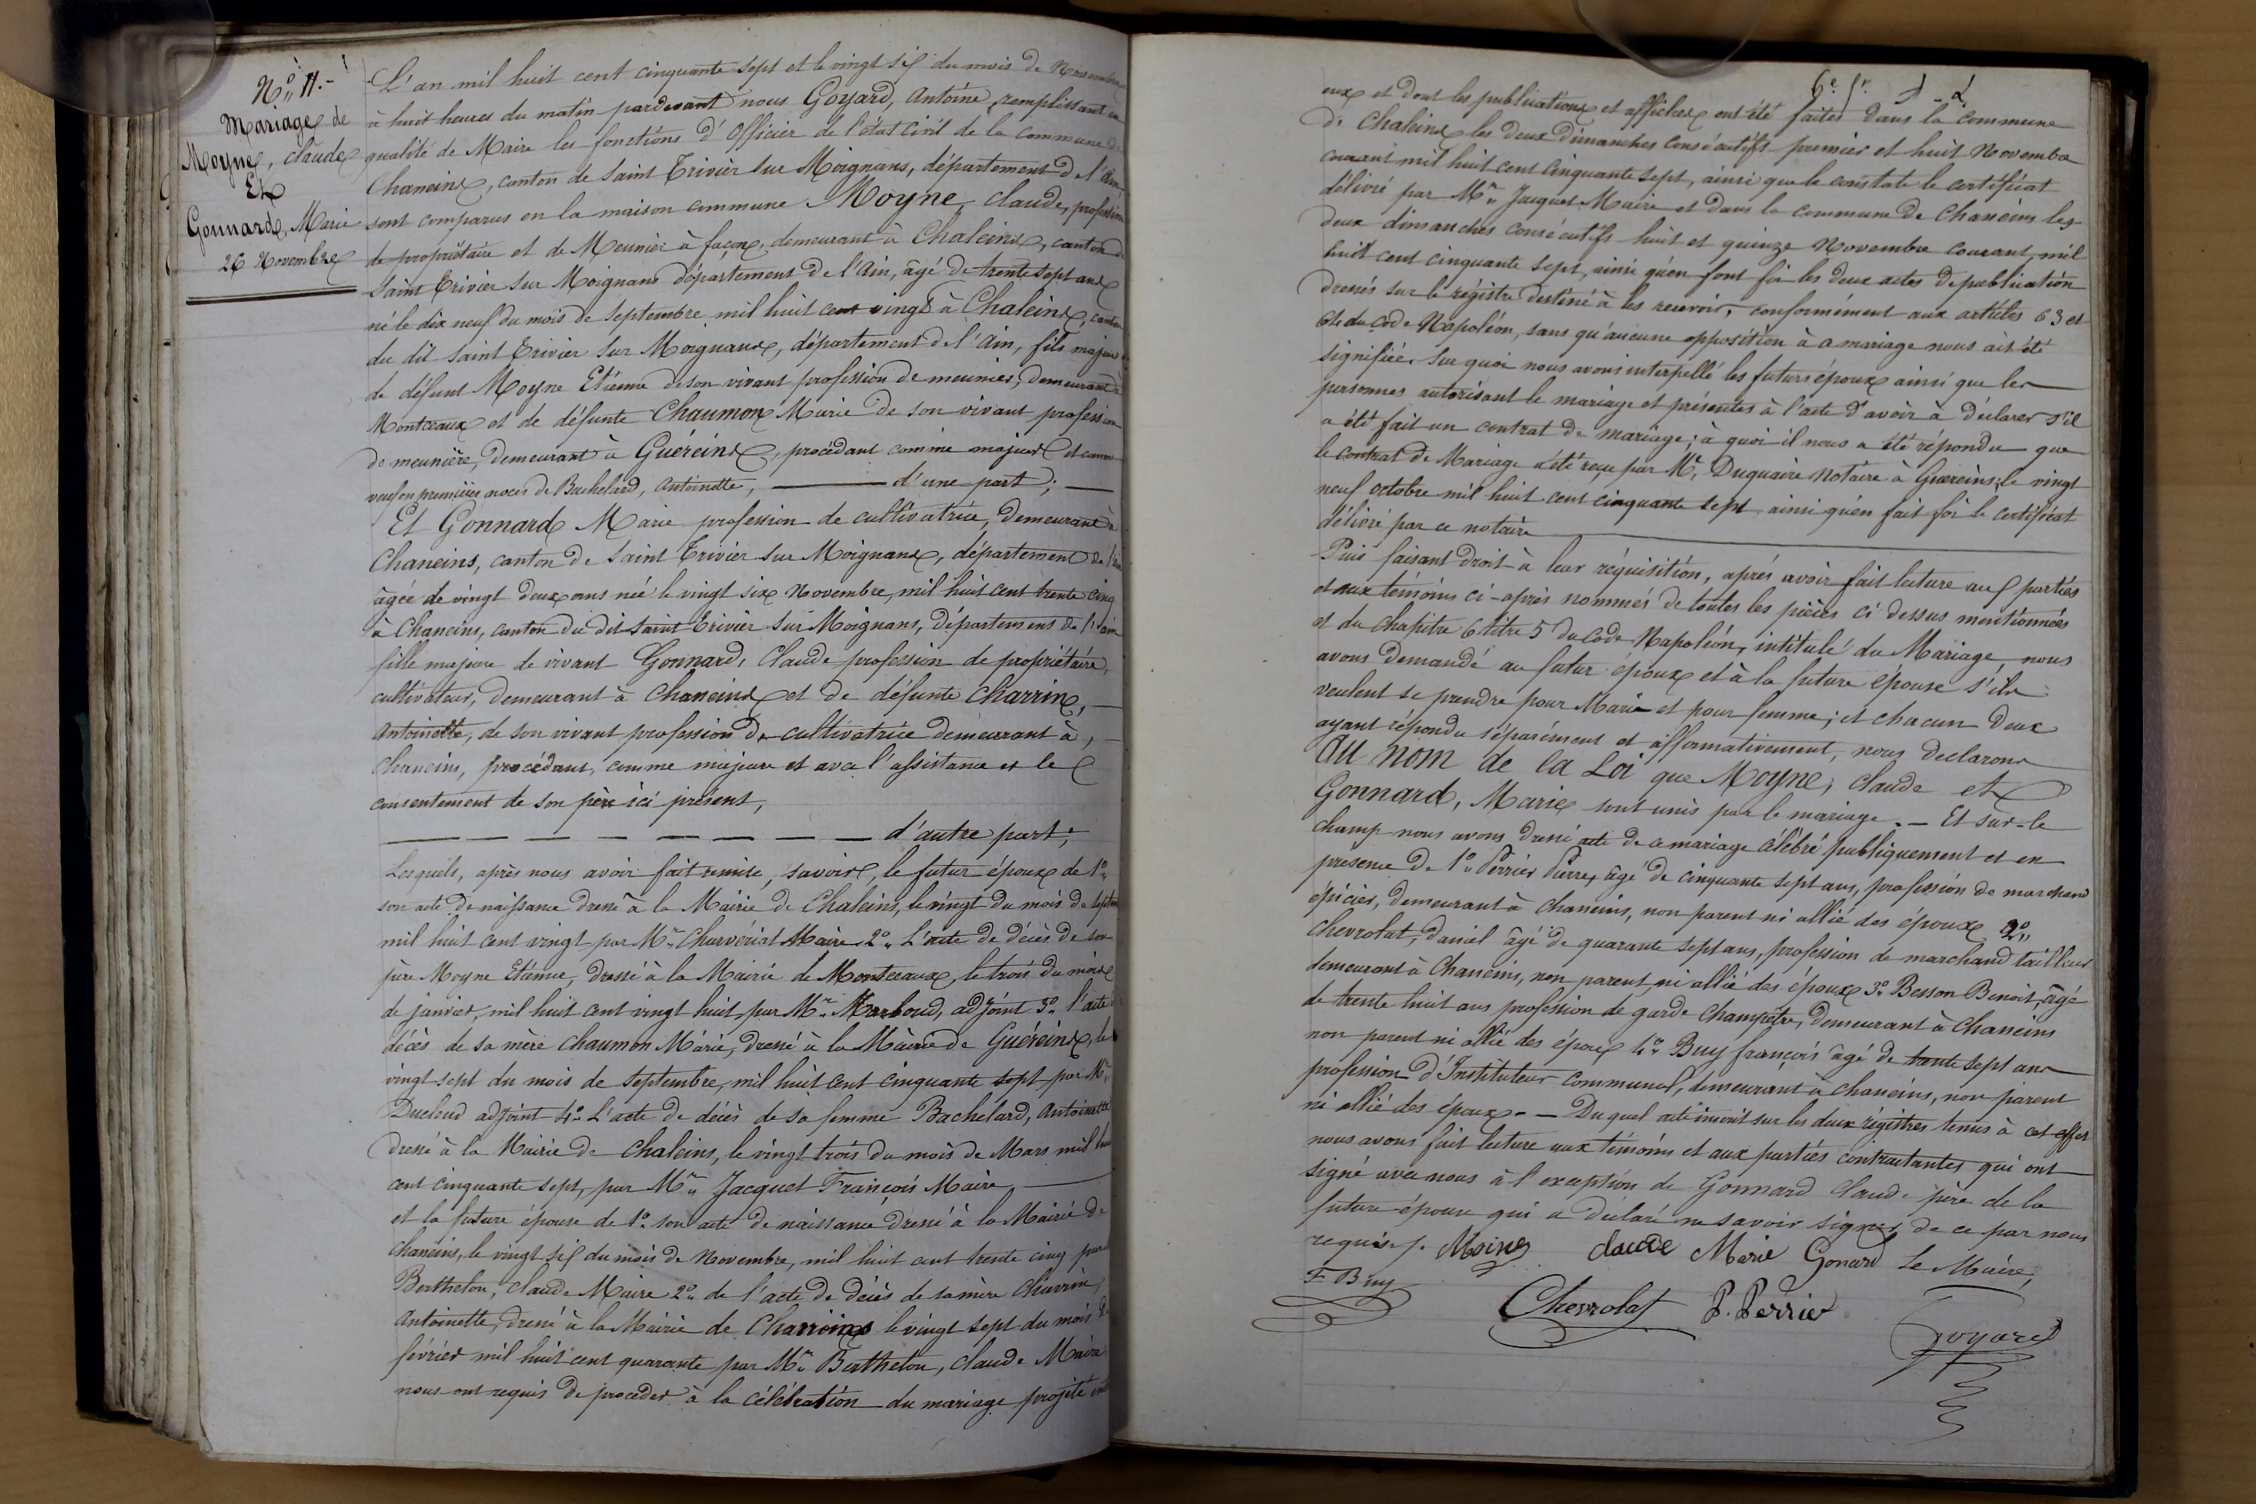 N° 11.-
Mariage de
Moyne, Claude
Et
Gonnard, Marie
26 Novembre
L'an mil huit cent cinquante sept et le vingt six du mois de Novembre
à huit heures du matin pardevant nous Goyard, Antoine, remplissant en
qualité de Maire les fonctions d'Officier de l'état civil de la commune de
Chaneins, canton de Saint Trivier sur Moignans, département de l'Ain
sont comparus en la maison commune Moyne, Claude, profession
de propriétaire et de Meunier à façon, demeurant à Chaleins, canton de
Saint Trivier sur Moignans département de l'Ain, âgé de trente sept ans
né le dix neuf du mois de Septembre mil huit cent vingt à Chaleins, canton
du dit Saint Trivier sur Moignans, département de l'Ain, fils majeur
de défunt Moyne Etienne de son vivant profession de meunier, demeurant à
Montceaux et de défunte Chaumon Marie de son vivant profession
de meunière, demeurant à Guéreins, procédant comme majeur et comme
veuf en premières noces de Bachelard, Antoinette, d'une part;
Et Gonnard Marie profession de cultivatrice, demeurant à
Chaneins, canton de Saint Trivier sur Moignans, département de l'Ain
âgée de vingt deux ans née le vingt six Novembre, mil huit cent trente cinq
à Chaneins, canton du dit Saint Trivier sur Moignans, département de l'Ain
fille majeure de vivant Gonnard, Claude profession de propriétaire,
cultivateur, demeurant à Chaneins et de défunte Charrin,
Antoinette, de son vivant profession de cultivatrice demeurant à,
Chaneins, procédant, comme majeure et avec l'assistance et le
consentement de son père ici présent,
— — — — — — — — d'autre part;
Lesquels, après nous avoir fait remise, savoir, le futur époux de 1°
son acte de naissance dressé à la Mairie de Chaleins, le vingt du mois de Septembre
mil huit cent vingt par Mr Charvériat Maire 2° L'acte de décès de son
père Moyne Etienne, dressé à la Mairie de Montceaux, le trois du mois
de janvier, mil huit cent vingt huit par Mr Marboud, adjoint 3° l'acte
décès de sa mère Chaumon Marie, dressé à la Mairie de Guéreins, le
vingt sept du mois de Septembre, mil huit cent cinquante sept par Mr
Ducloud adjoint 4° L'acte de décès de sa femme Bachelard, Antoinette
dressé à la Mairie de Chaleins, le vingt trois du mois de Mars mil huit
cent cinquante sept, par Mr Jacquet François Maire
et la future épouse de 1° son acte de naissance dressé à la Mairie de
Chaneins, le vingt six du mois de Novembre, mil huit cent trente cinq par
Berthelon, Claude Maire 2° de l'acte de décès de sa mère Charrin,
Antoinette, dressé à la Mairie de Chaneins le vingt sept du mois de
février mil huit cent quarante par Mr Berthelon, Claude Maire
nous ont requis de procéder à la célébration du mariage projeté entre
eux et dont les publications et affiches ont été faites dans la commune
de Chaleins les deux dimanches consécutifs premier et huit Novembre
courant mil huit cent cinquante sept, ainsi que le constate le certificat
délivré par Mr Jacquet Maire et dans la commune de Chaneins les
deux dimanches consécutifs huit et quinze Novembre courant, mil
huit cent cinquante sept, ainsi qu'en font foi les deux actes de publication
dressés sur le régistre destiné à les recevoir, conformément aux articles 63 et
64 du Code Napoléon, sans qu'aucune opposition à ce mariage nous ait été
signifiée. Sur quoi nous avons interpellé les futurs époux ainsi que les
personnes autorisant le mariage et présentes à l'acte d'avoir à déclarer s'il
a été fait un contrat de mariage; à quoi il nous a été répondu que
le contrat de Mariage a été reçu par Mr Duquaire Notaire à Guéreins, le vingt
neuf octobre mil huit cent cinquante sept ainsi qu'en fait foi le certificat
délivré par ce notaire
Puis faisant droit à leur réquisition, après avoir fait lecture aux parties
et aux témoins ci-après nommés de toutes les pièces ci dessus mentionnées
et du chapitre 6 titre 5 du Code Napoléon, intitulé du Mariage, nous
avons demandé au futur époux et à la future épouse s'ils
veulent se prendre pour Mari et pour femme; et chacun deux
ayant répondu séparément et affirmativement, nous déclarons
Au nom de la Loi que Moyne, Claude et
Gonnard, Marie sont unis par le mariage. — Et sur-le
champ nous avons dressé acte de ce mariage célébré publiquement et en
présence de 1° Perrier Pierre, âgé de cinquante sept ans, profession de marchand
épicier, demeurant à Chaneins, non parent ni allié des époux 2°
Chevrolat, Daniel âgé de quarante sept ans, profession de marchand tailleur
demeurant à Chaneins, non parent, ni allié des époux 3° Besson Benoit, âgé
de trente huit ans profession de garde Champêtre, demeurant à Chaneins
non parent ni allié des époux 4° Buy françois âgé de trente sept ans
profession d'Instituteur communal, demeurant à Chaneins, non parent
ni allié des époux. — Duquel acte inscrit sur les deux régistres tenus à cet effet
nous avons fait lecture aux témoins et aux parties contractantes qui ont
signé avec nous à l'exception de Gonnard Claude père de la
future épouse qui a déclaré ne savoir signer de ce par nous
requis. Moine claude Marie Gonard Le Maire,
F Buy
Chevrolat P. Perrier
Goyard